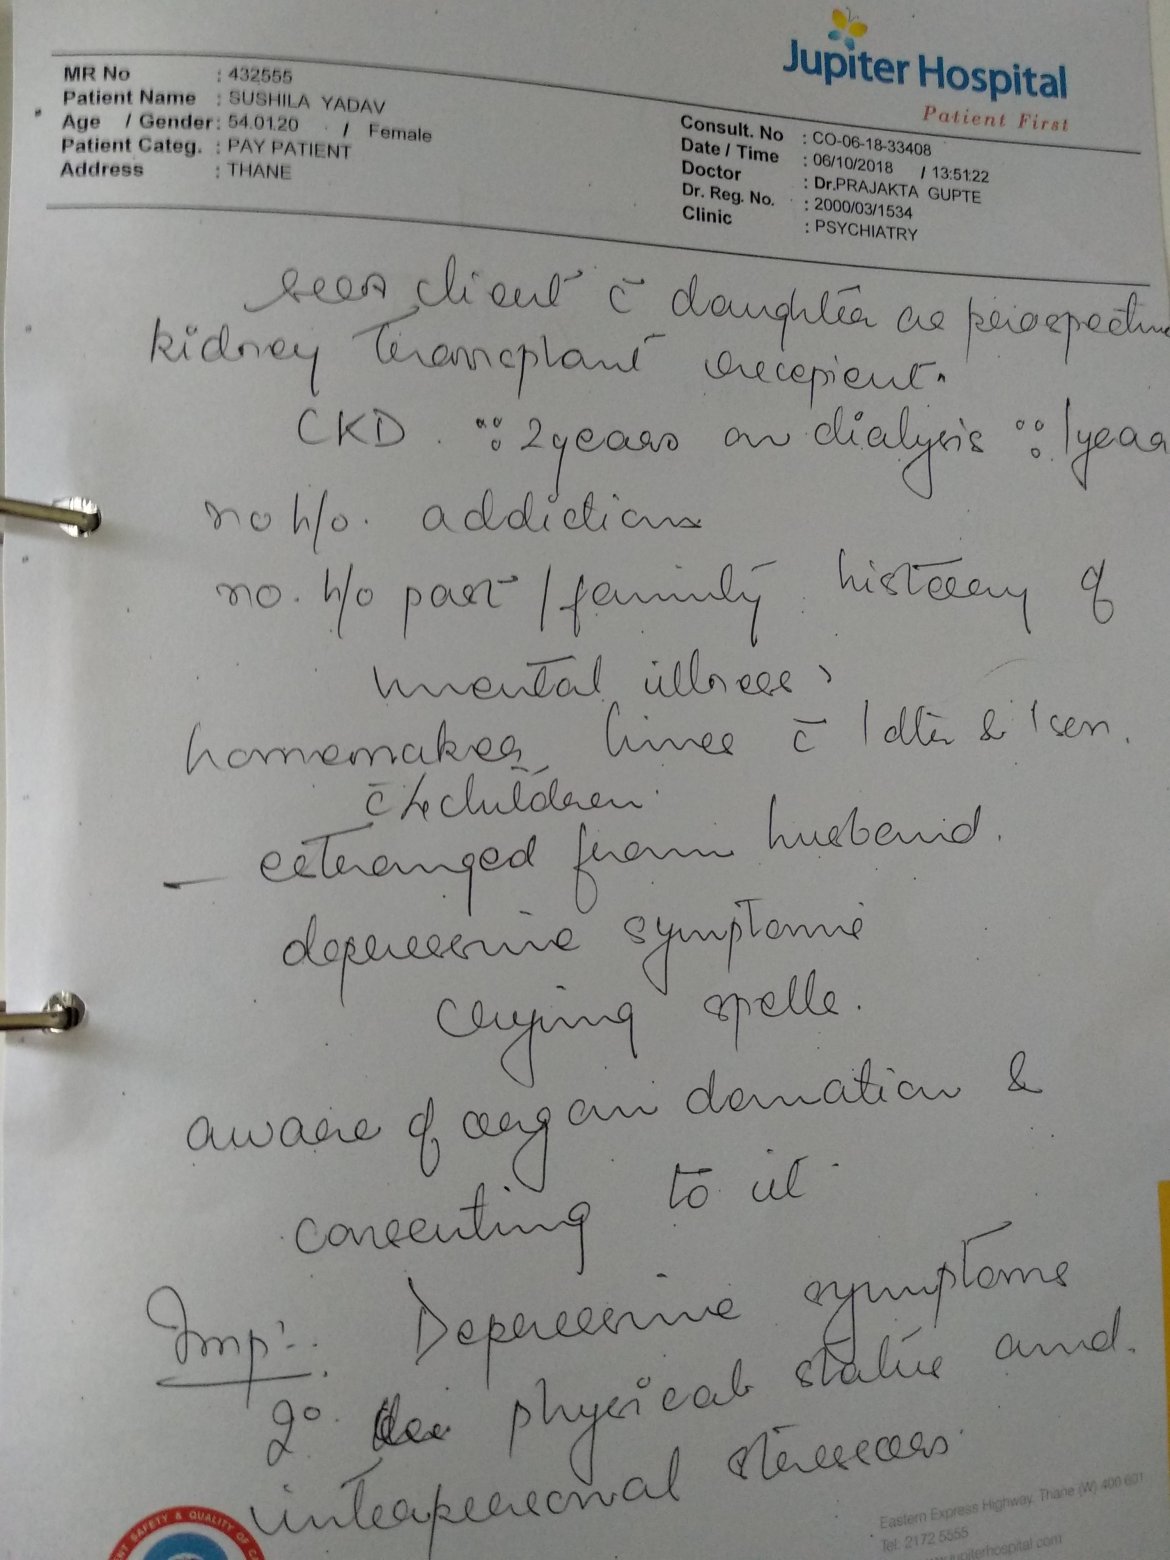 Jupiter Hospital
Patient First
MR No : 432555
Patient Name : SUSHILA YADAV
Age / Gender : 54.01.20 / Female
Patient Categ. : PAY PATIENT
Address : THANE
Consult. No : CO-06-18-33408
Date / Time : 06/10/2018 / 13:51:22
Doctor : Dr.PRAJAKTA GUPTE
Dr. Reg. No. : 2000/03/1534
Clinic : PSYCHIATRY
seen client c̄ daughter as prospective
kidney transplant recepient.
CKD. :: 2 years on dialysis :: 1 year
no h/o. addiction
no. h/o past / family history of
mental illness
homemaker, lives c̄ 1 dtr & 1 son.
c̄ children.
– estranged from husband.
depressive symptoms
crying spells.
aware of organ donation &
consenting to it.
Imp:-. Depressive symptoms
2°. physical status and.
interpersonal stressors.
SAFETY & QUALITY OF
Eastern Express Highway, Thane (W) 400 601
Tel. 2172 5555
jupiterhospital.com